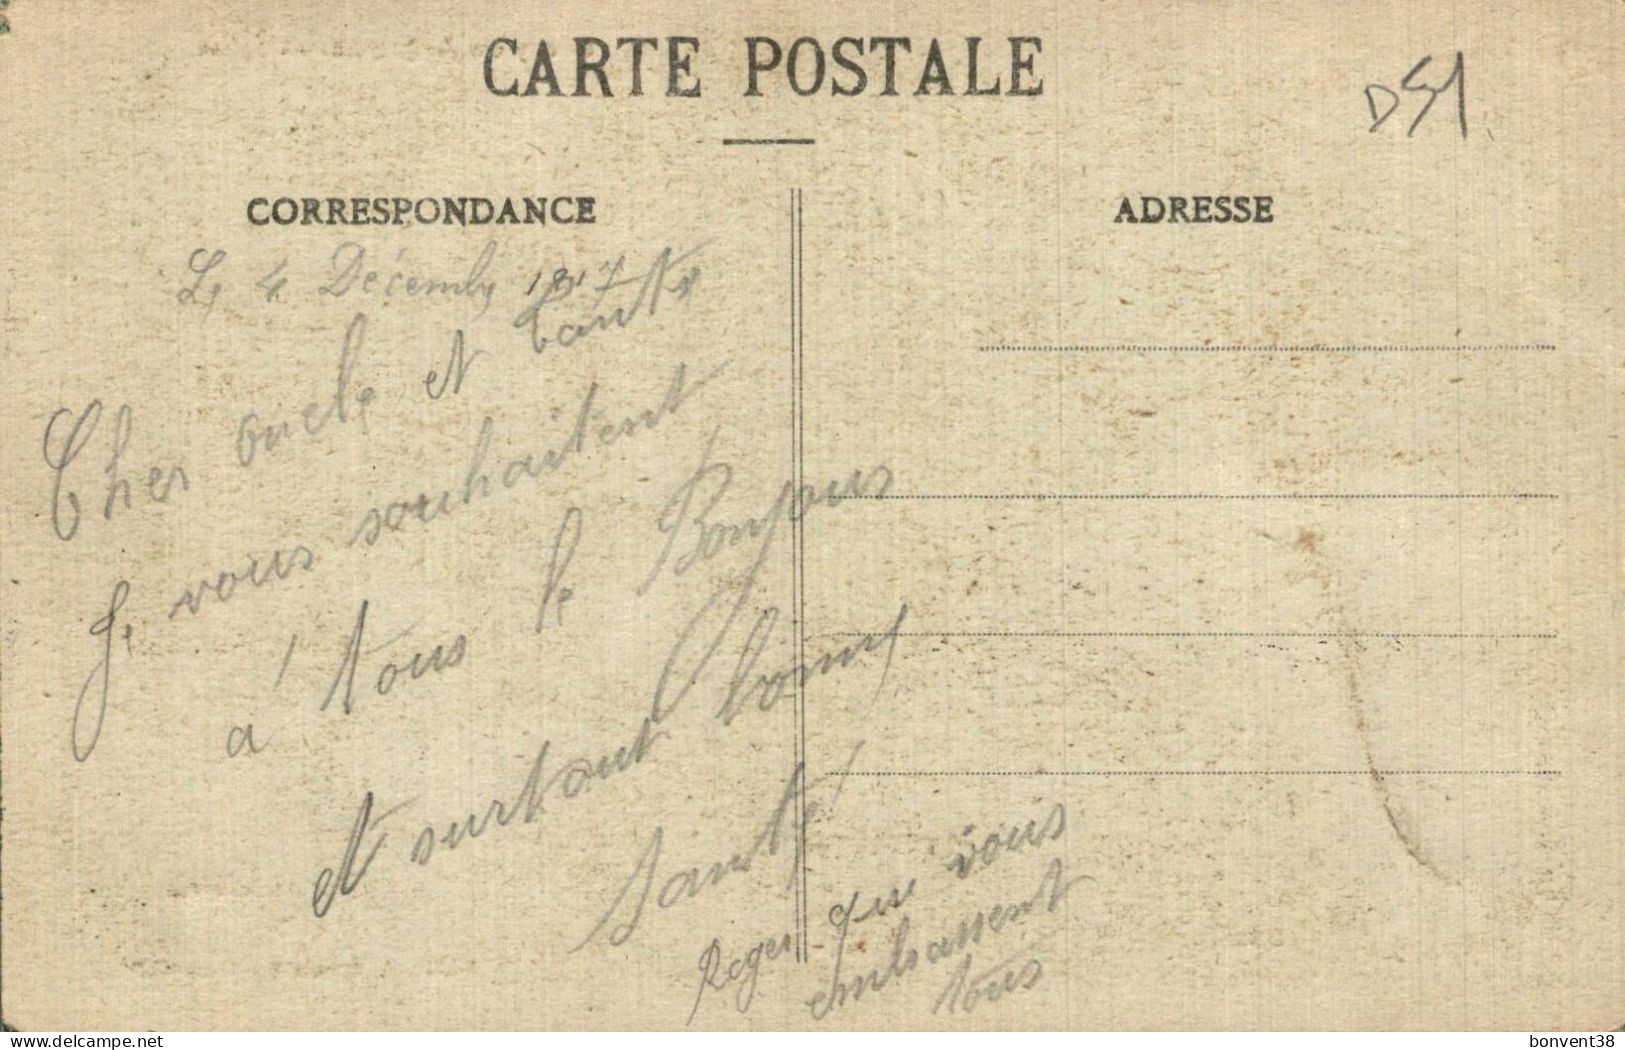 CARTE POSTALE
D51
CORRESPONDANCE
ADRESSE
Le 4 Décembre 1917
Cher oncle et tante
Je vous souhaitent
à tous le Bonjour
et surtout bonne
santé
Roger que vous
embrassent
tous
delcampe.net
bonvent38